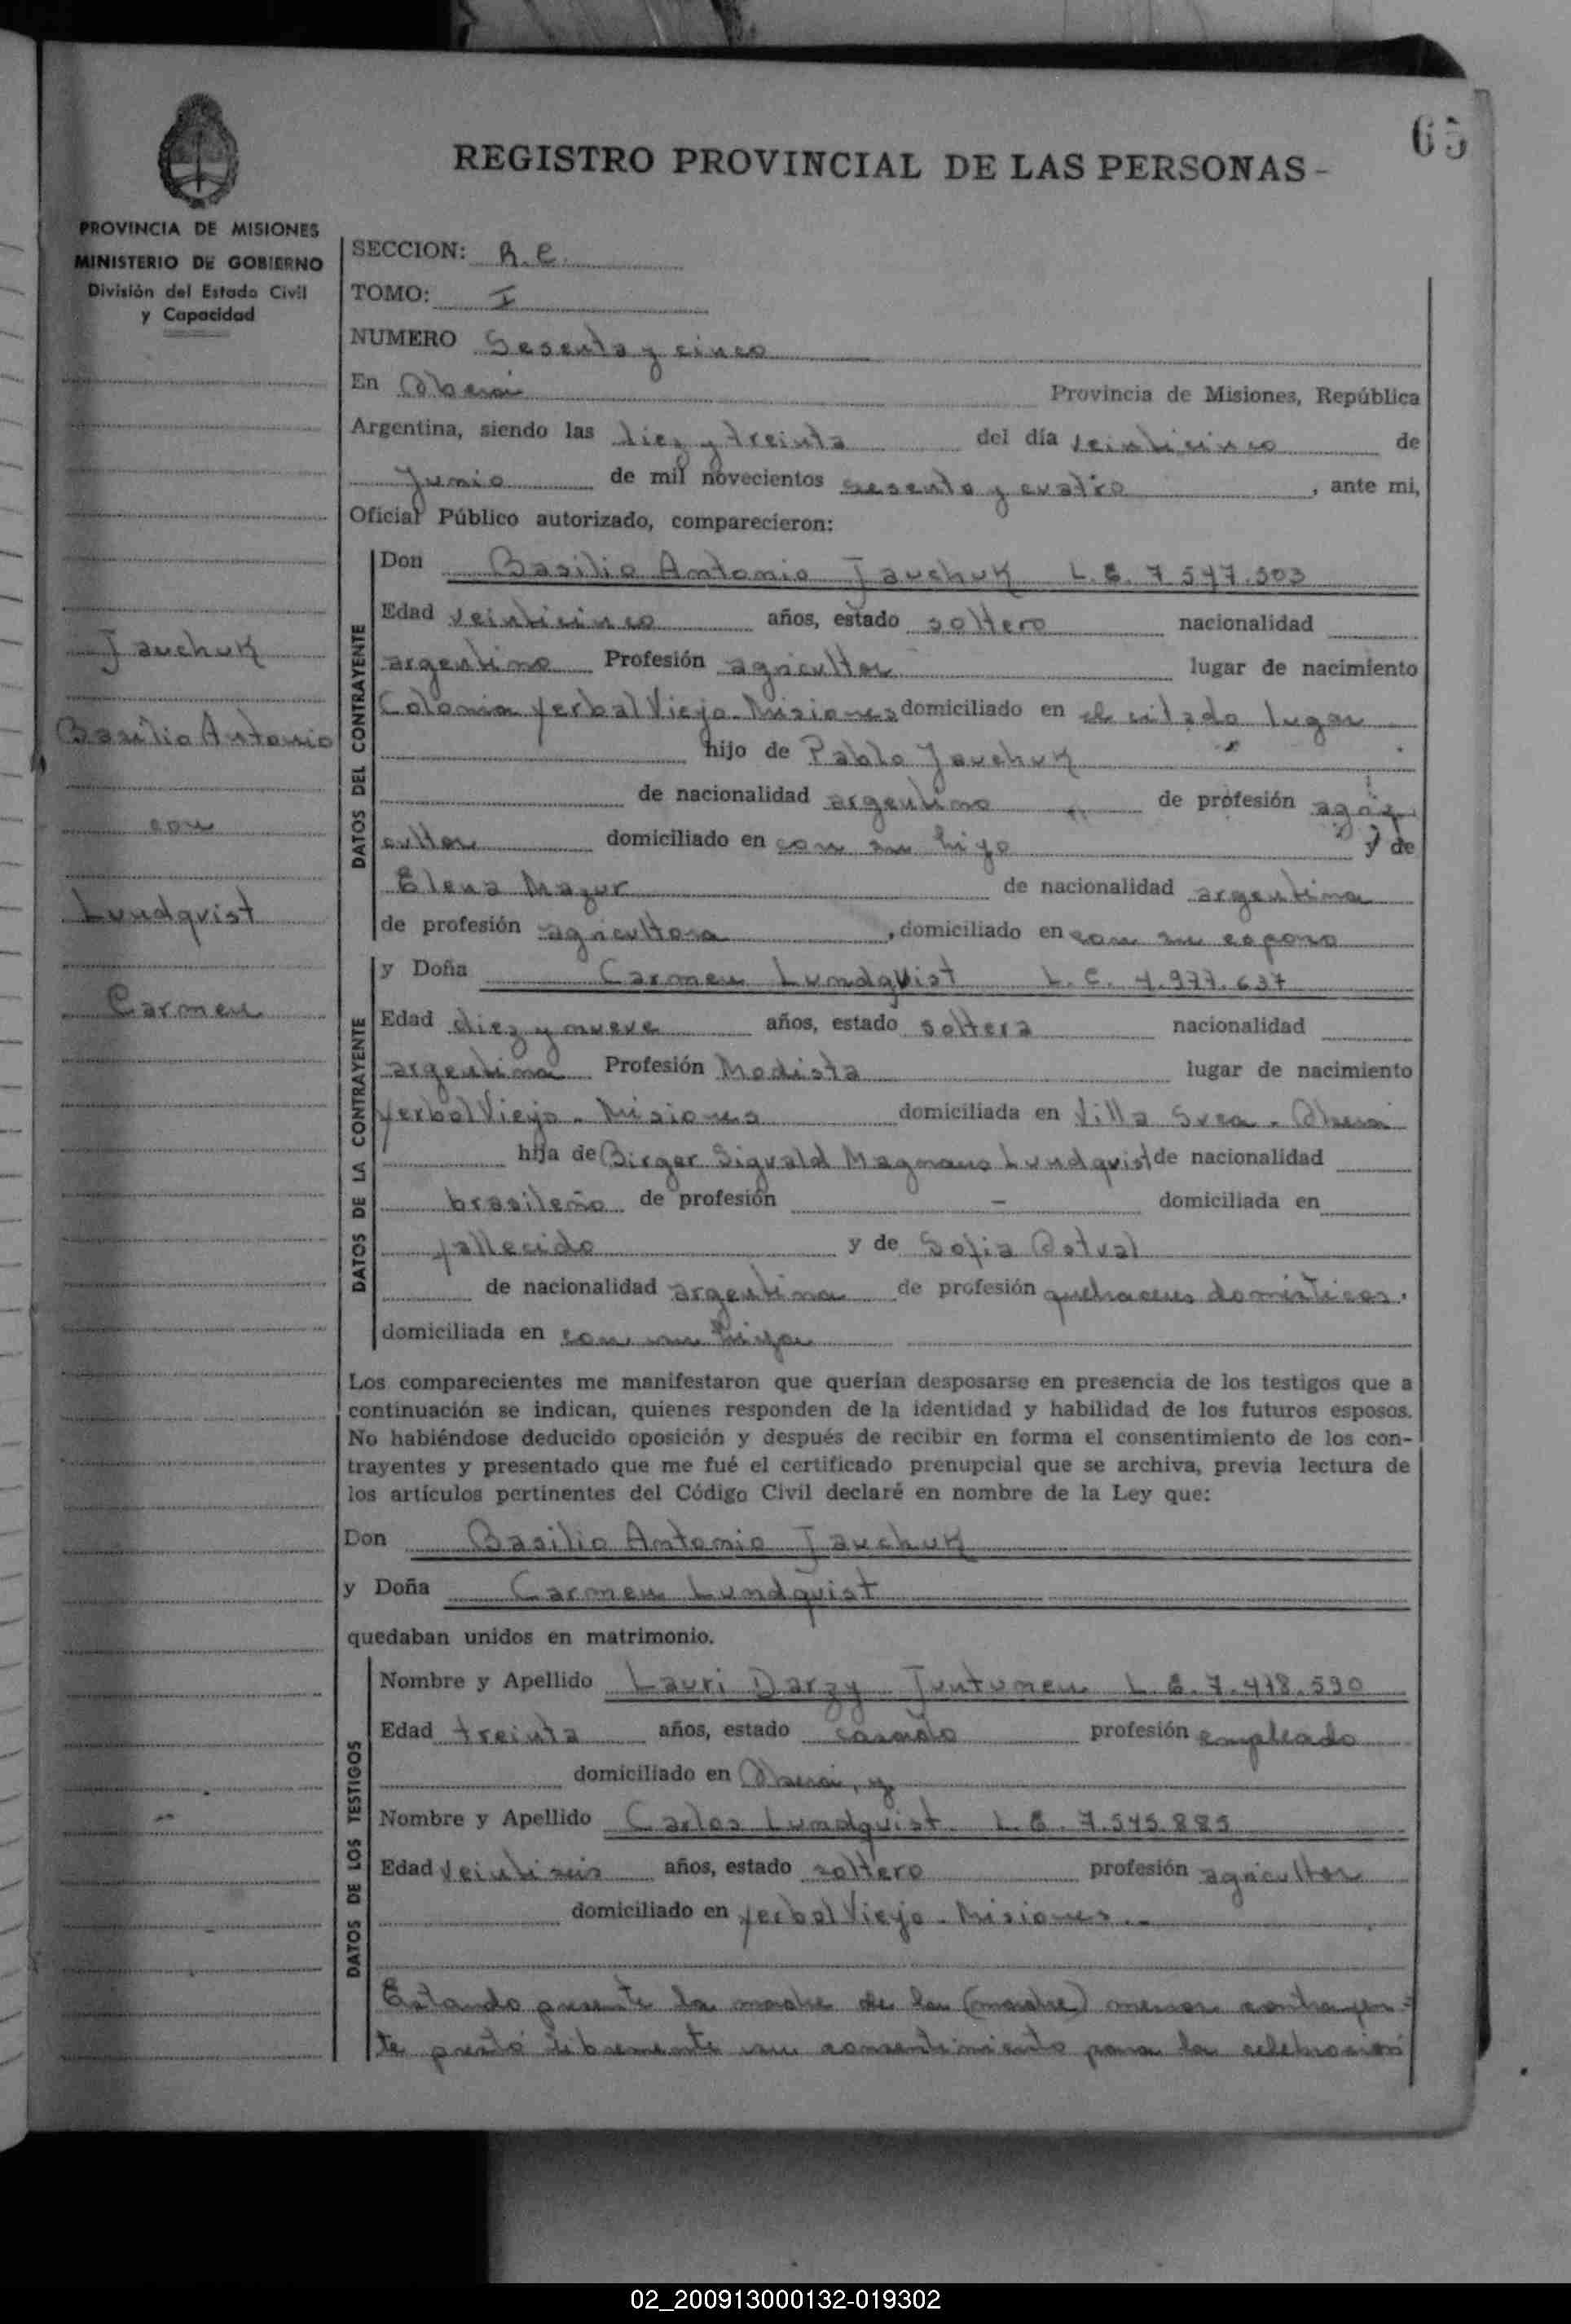 65
REGISTRO PROVINCIAL DE LAS PERSONAS -
PROVINCIA DE MISIONES
MINISTERIO DE GOBIERNO
División del Estado Civil
y Capacidad
SECCION: R. C.
TOMO: I
NUMERO Sesenta y cinco
En Oberá Provincia de Misiones, República
Argentina, siendo las diez y treinta del día veinticinco de
Junio de mil novecientos sesenta y cuatro, ante mi,
Oficial Público autorizado, comparecieron:
Jauchuk
Basilio Antonio
con
Lundqvist
Carmen
DATOS DEL CONTRAYENTE
Don Basilio Antonio Jauchuk L. E. 7.547.503
Edad veinticinco años, estado soltero nacionalidad
argentino Profesión agricultor lugar de nacimiento
Colonia Yerbal Viejo - Misiones domiciliado en el citado lugar
hijo de Pablo Jauchuk
de nacionalidad argentino de profesión agri
cultor domiciliado en con su hijo y de
Elena Mazur de nacionalidad argentina
de profesión agricultora, domiciliado en con su esposo
DATOS DE LA CONTRAYENTE
y Doña Carmen Lundqvist L. C. 4.977.637
Edad diez y nueve años, estado soltera nacionalidad
argentina Profesión Modista lugar de nacimiento
Yerbal Viejo - Misiones domiciliada en Villa Svea - Oberá
hija de Birger Sigvald Magnaus Lundqvist de nacionalidad
brasileño de profesión - domiciliada en
fallecido y de Sofia Ostval
de nacionalidad argentina de profesión quehaceres domésticos.
domiciliada en con su hija
Los comparecientes me manifestaron que querían desposarse en presencia de los testigos que a
continuación se indican, quienes responden de la identidad y habilidad de los futuros esposos.
No habiéndose deducido oposición y después de recibir en forma el consentimiento de los con-
trayentes y presentado que me fué el certificado prenupcial que se archiva, previa lectura de
los artículos pertinentes del Código Civil declaré en nombre de la Ley que:
Don Basilio Antonio Jauchuk
y Doña Carmen Lundqvist
quedaban unidos en matrimonio.
DATOS DE LOS TESTIGOS
Nombre y Apellido Lauri Darzy Juntunen L. E. 7.478.590
Edad treinta años, estado casado profesión empleado
domiciliado en Oberá, y
Nombre y Apellido Carlos Lundqvist L. E. 7.545.885
Edad veintiseis años, estado soltero profesión agricultor
domiciliado en Yerbal Viejo - Misiones.-
Estando presente la madre de la (madre) menor contrayen-
te prestó libremente su consentimiento para la celebración
02_200913000132-019302